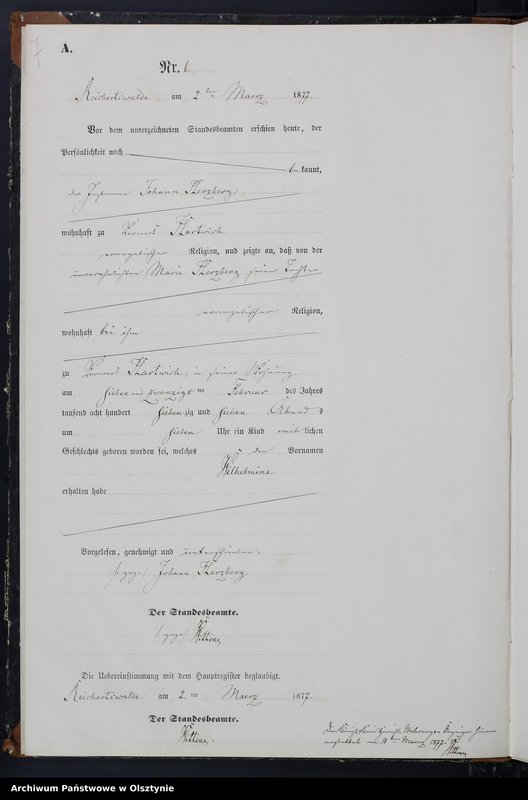 7
A.
Nr. 6.
Reichertswalde am 2 ten Maerz 1877.
Vor dem unterzeichneten Standesbeamten erschien heute, der
Persönlichkeit nach
bekannt,
der Instmann Johann Herzberg
wohnhaft zu Vorwerk Hartwich
evangelischer Religion, und zeigte an, daß von der
unverehelichten Marie Herzberg seiner Tochter
evangelischer Religion,
wohnhaft bei ihm
zu Vorwerk Hartwich, in seiner Wohnung
am sieben und zwanzigsten Februar des Jahres
tausend acht hundert siebenzig und sieben Abends
um sieben Uhr ein Kind weiblichen
Geschlechts geboren worden sei, welches den Vornamen
Wilhelmine
erhalten habe
Vorgelesen, genehmigt und unterschrieben.
(gez.) Johann Herzberg
Der Standesbeamte.
(gez.)
Die Uebereinstimmung mit dem Hauptregister beglaubigt.
Reichertswalde am 2. ten Maerz 1877.
Der Standesbeamte.
Mohrungen
am 18 ten Maerz 1877.
Archiwum Państwowe w Olsztynie